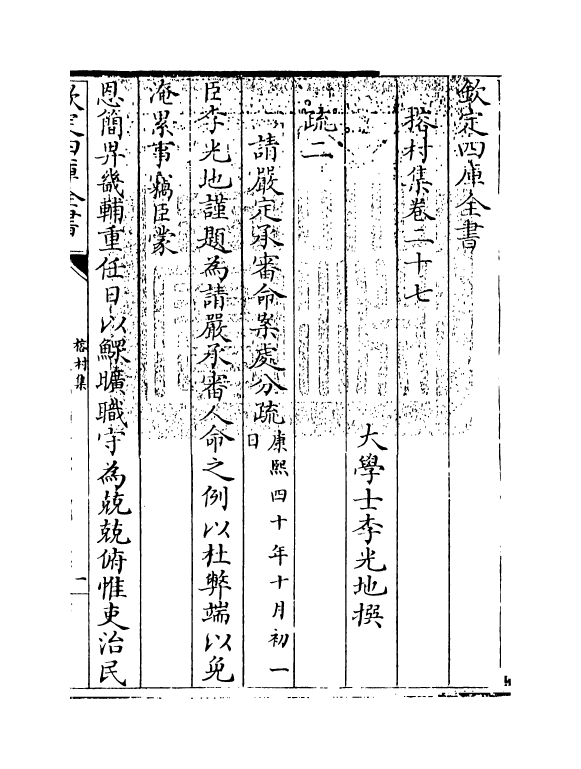 欽定四庫全書
榕村集卷二十七
大學士李光地撰
疏二
請嚴定承審命案處分疏康熙四十年十月初一日
臣李光地謹題為請嚴承審人命之例以杜弊端以免
淹累事竊臣蒙
恩簡畀畿輔重任日以鰥曠職守為兢兢俯惟吏治民
欽定四庫全書
榕村集
一